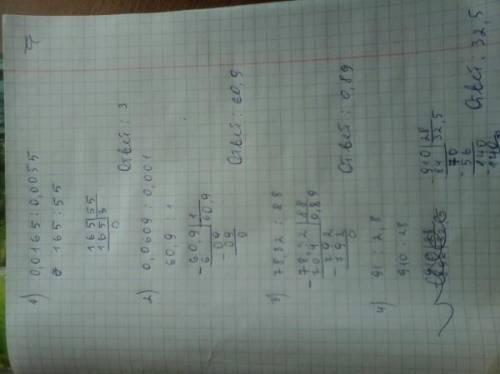 1) 0,0165 : 0,0055
165 : 55
165 | 55
165 | 3
0
Ответ : 3
2) 0,0609 : 0,001
60,9 : 1
- 60,9 | 1
6 | 60,9
- 09
09
0
Ответ : 60,9
3) 78,32 : 88
- 78,32 | 88
704 | 0,89
- 792
792
0
Ответ : 0,89
4) 91 : 2,8
910 : 28
- 910 | 28
84 | 32,5
- 70
56
- 140
140
Ответ. 32,5